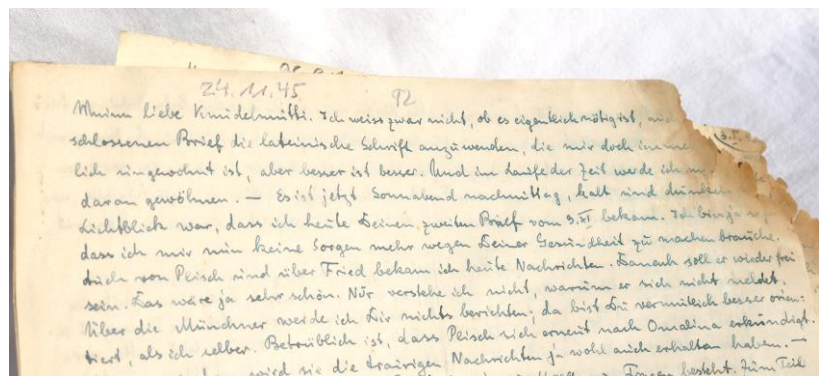 24.11.45 92
Meine liebe Knudelmutti. Ich weiss zwar nicht, ob es eigentlich nötig ist, auch
schlossenen Brief die lateinische Schrift anzuwenden, die mir doch immer
lich ungewohnt ist, aber besser ist besser. Und im Laufe der Zeit werde ich m
daran gewöhnen. — Es ist jetzt Sonnabend nachmittag, kalt und dunkel.
Lichtblick war, dass ich heute Deinen zweiten Brief vom 9.XI bekam. Ich bin ja so
dass ich mir nun keine Sorgen mehr wegen Deiner Gesundheit zu machen brauche.
Auch von Peisch und über Fried bekam ich heute Nachrichten. Danach soll er wieder frei
sein. Das wäre ja sehr schön. Nur verstehe ich nicht, warum er sich nicht meldet.
Über die Münchner werde ich Dir nichts berichten; da bist Du vermutlich besser orien-
tiert, als ich selber. Betrüblich ist, dass Peisch sich erneut nach Omalina erkundigt.
wird sie die traurigen Nachrichten ja wohl auch erhalten haben. —
Fragen besteht. Zum Teil